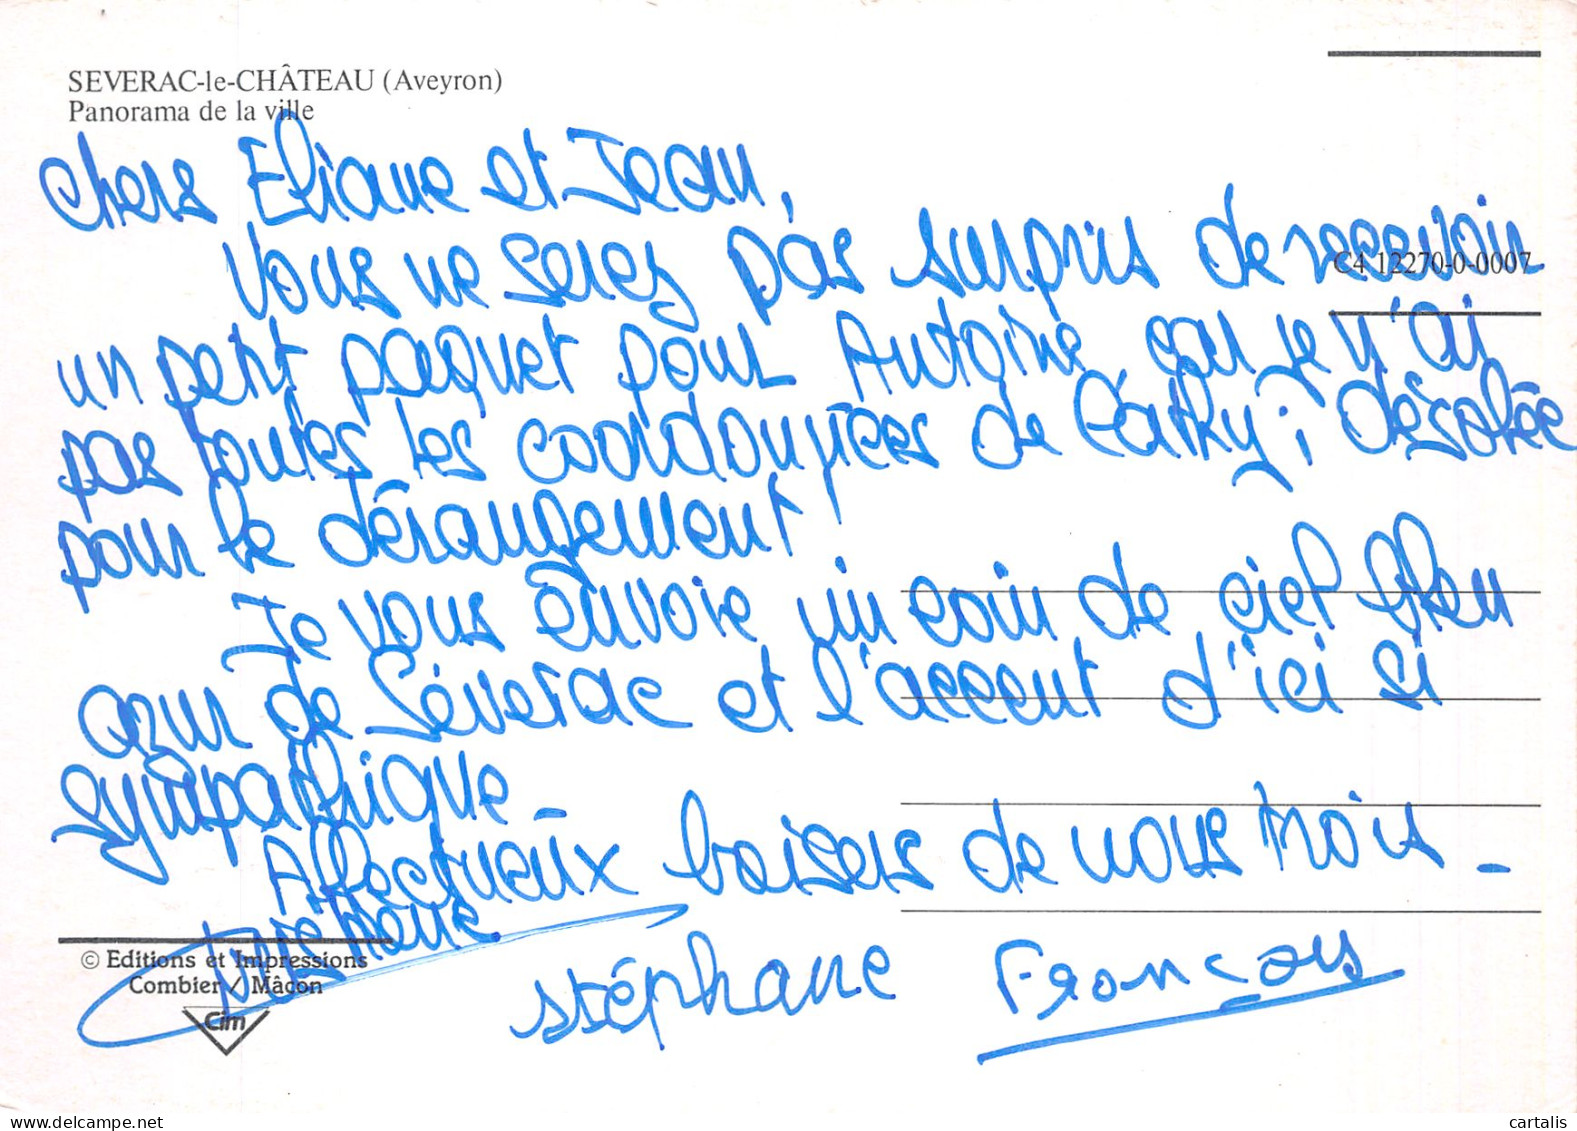 SEVERAC-le-CHÂTEAU (Aveyron)
Panorama de la ville
Chers Eliane et Jean,
Vous ne serez pas surpris de recevoir
C4 12270-0-0007
un petit paquet pour Antoine car je n'ai
pas toutes les coordonnées de Cathy ; désolée
pour le dérangement !
Je vous envoie un coin de ciel bleu
azur de Séverac et l'accent d'ici si
sympathique _
Affectueux baisers de nous trois _
© Editions et Impressions
Combier / Mâcon
Cim
Stéphane François
www.delcampe.net
cartalis